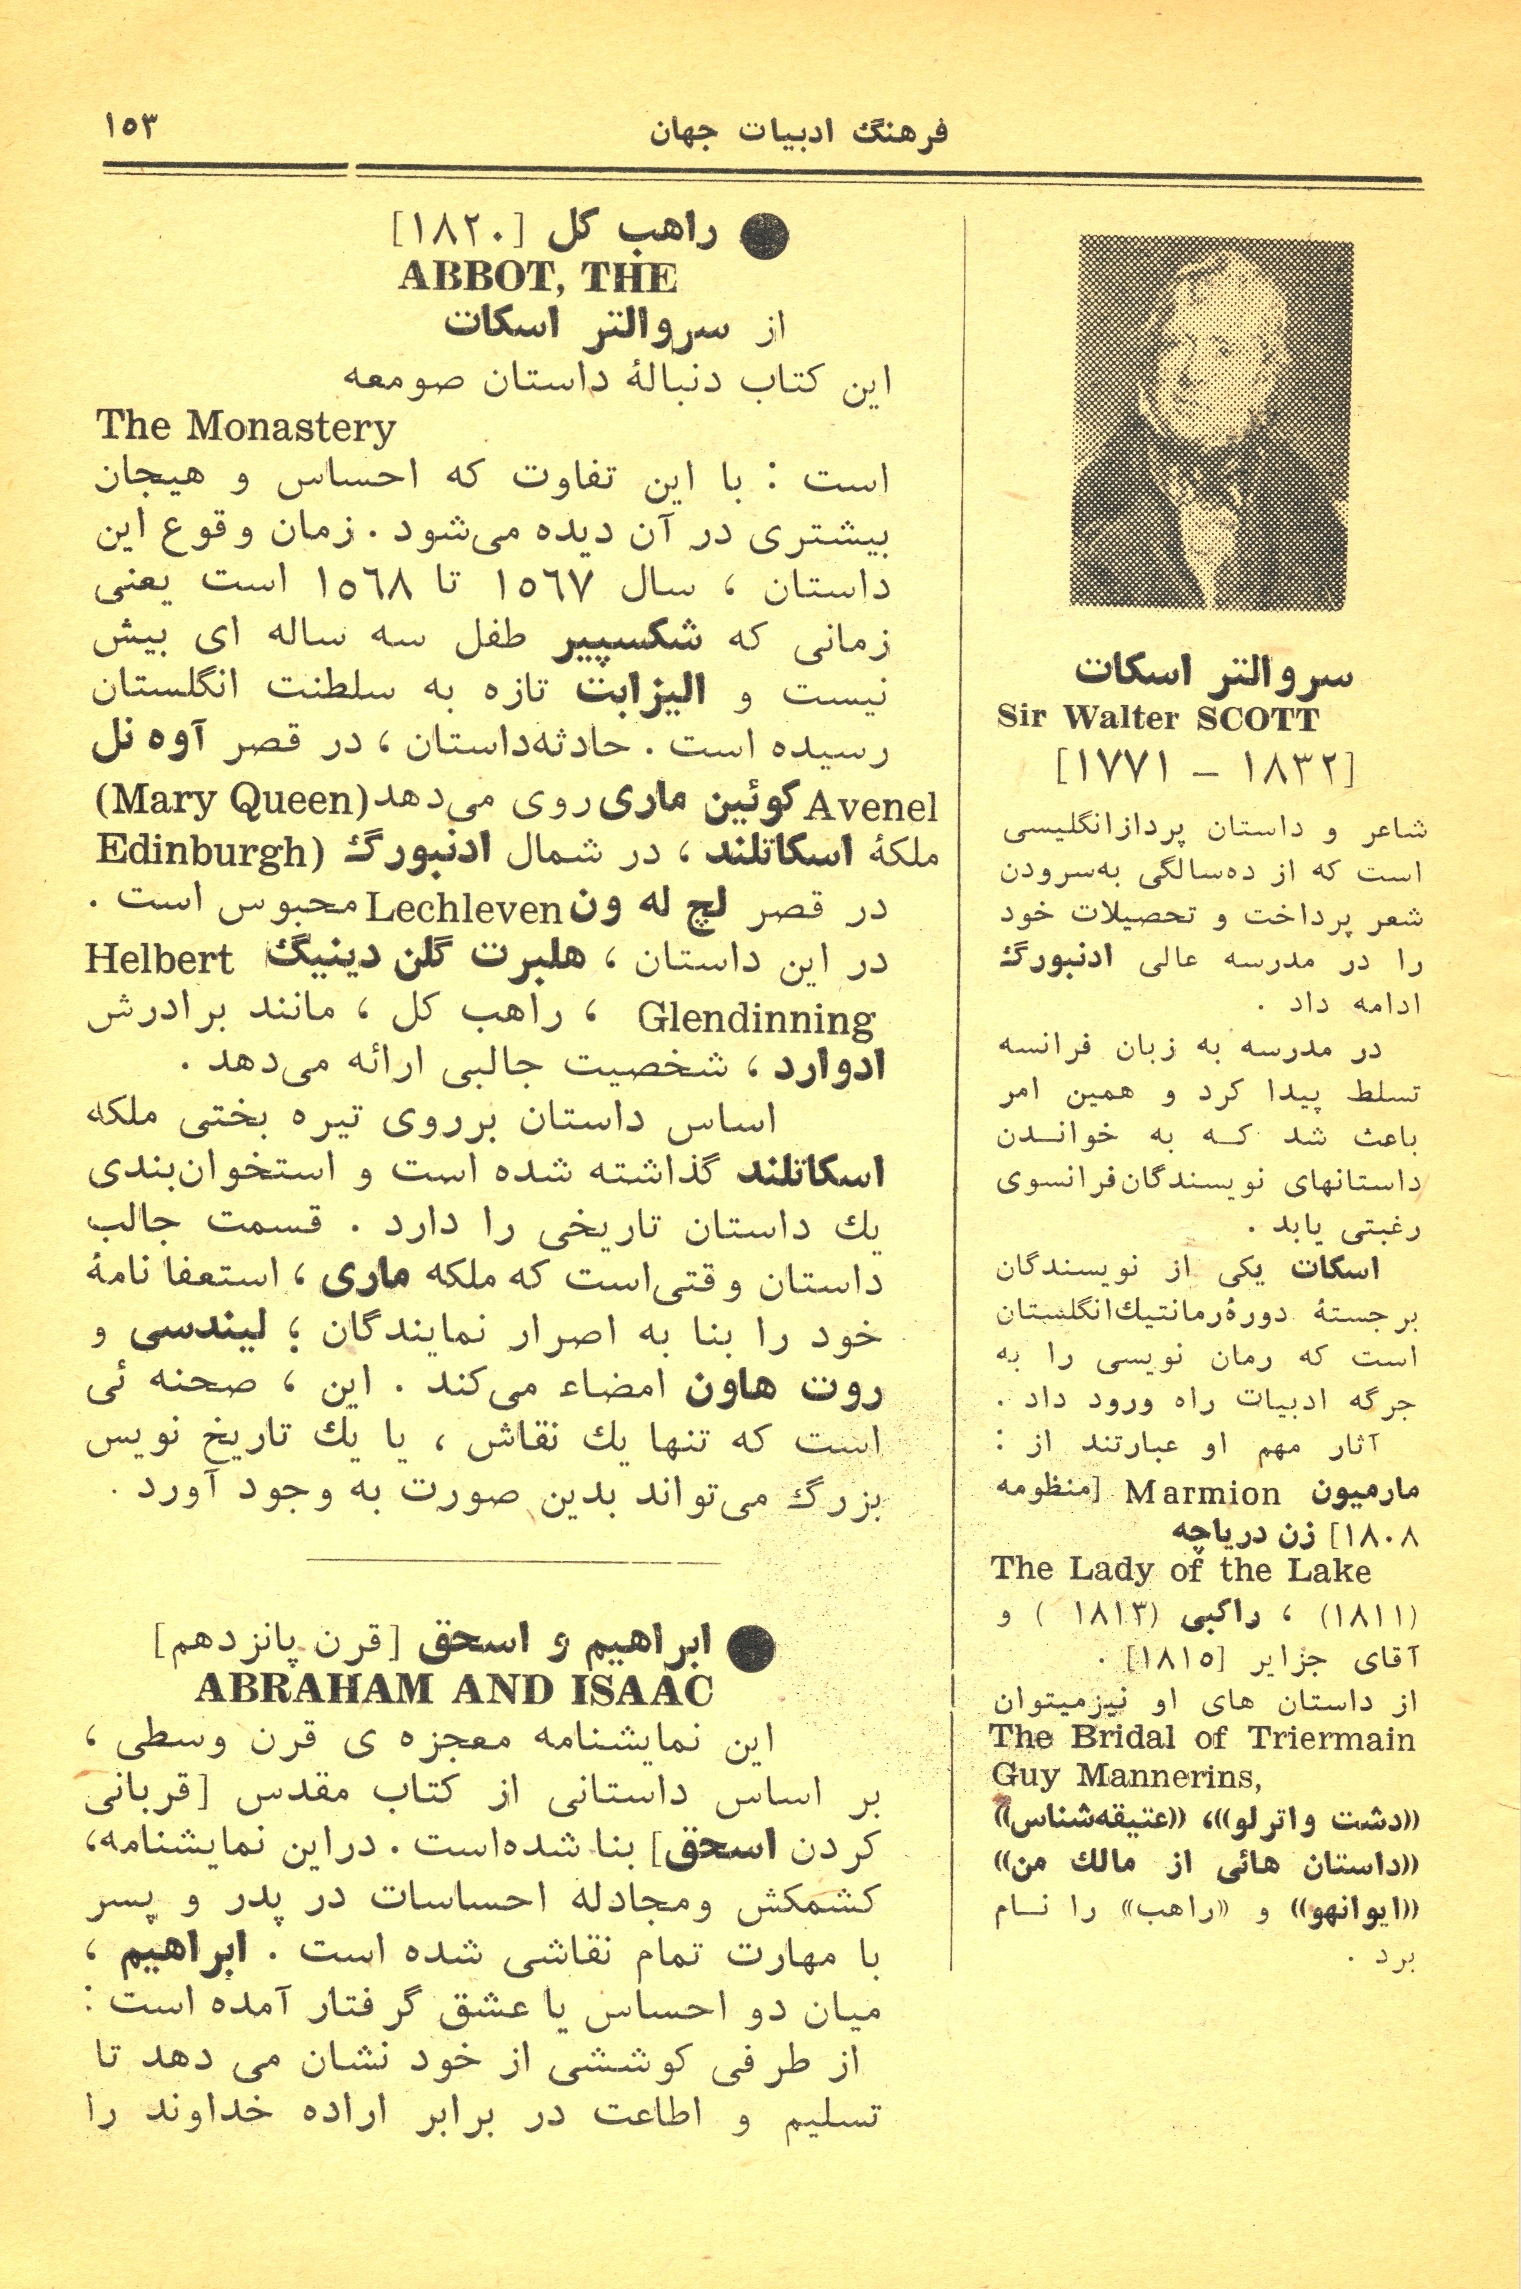 فرهنگ ادبیات جهان
۱۵۳
سروالتر اسکات
Sir Walter SCOTT
[۱۸۳۲ – ۱۷۷۱]
شاعر و داستان پردازانگلیسی
است که از ده‌سالگی به‌سرودن
شعر پرداخت و تحصیلات خود
را در مدرسه عالی ادنبورگ
ادامه داد .
در مدرسه به زبان فرانسه
تسلط پیدا کرد و همین امر
باعث شد کـه به خوانـدن
داستانهای نویسندگان‌فرانسوی
رغبتی یابد .
اسکات یکی از نویسندگان
برجستهٔ دورهٔ‌رمانتیك‌انگلستان
است که رمان نویسی را به
جرگه ادبیات راه ورود داد .
آثار مهم او عبارتند از :
مارمیون Marmion [منظومه
۱۸۰۸] زن دریاچه
The Lady of the Lake
(۱۸۱۱) ، راکبی (۱۸۱۳ ) و
آقای جزایر [۱۸۱۵] .
از داستان های او نیزمیتوان
The Bridal of Triermain
Guy Mannerins,
«دشت واترلو»، «عتیقه‌شناس»
«داستان هائی از مالك من»
«ایوانهو» و «راهب» را نـام
برد .
● راهب کل [۱۸۲۰]
ABBOT, THE
از سروالتر اسکات
این کتاب دنبالهٔ داستان صومعه
The Monastery
است : با این تفاوت که احساس و هیجان
بیشتری در آن دیده می‌شود . زمان وقوع این
داستان ، سال ۱۵۶۷ تا ۱۵۶۸ است یعنی
زمانی که شکسپیر طفل سه ساله ای بیش
نیست و الیزابت تازه به سلطنت انگلستان
رسیده است . حادثه‌داستان ، در قصر آوه نل
Avenel روی می‌دهد کوئین ماری (Mary Queen)
ملکهٔ اسکاتلند ، در شمال ادنبورگ (Edinburgh
در قصر لچ له ون Lechleven محبوس است .
در این داستان ، هلبرت گلن دینیگ Helbert
Glendinning ، راهب کل ، مانند برادرش
ادوارد ، شخصیت جالبی ارائه می‌دهد .
اساس داستان برروی تیره بختی ملکه
اسکاتلند گذاشته شده است و استخوان‌بندی
یك داستان تاریخی را دارد . قسمت جالب
داستان وقتی‌است که ملکه ماری ، استعفا نامهٔ
خود را بنا به اصرار نمایندگان ؛ لیندسی و
روت هاون امضاء می‌کند . این ، صحنه ئی
است که تنها یك نقاش ، یا یك تاریخ نویس
بزرگ می‌تواند بدین صورت به وجود آورد .
● ابراهیم و اسحق [قرن پانزدهم]
ABRAHAM AND ISAAC
این نمایشنامه معجزه ی قرن وسطی ،
بر اساس داستانی از کتاب مقدس [قربانی
کردن اسحق] بنا شده‌است . دراین نمایشنامه،
کشمکش ومجادله احساسات در پدر و پسر
با مهارت تمام نقاشی شده است . ابراهیم ،
میان دو احساس یا عشق گرفتار آمده است :
از طرفی کوششی از خود نشان می دهد تا
تسلیم و اطاعت در برابر اراده خداوند را